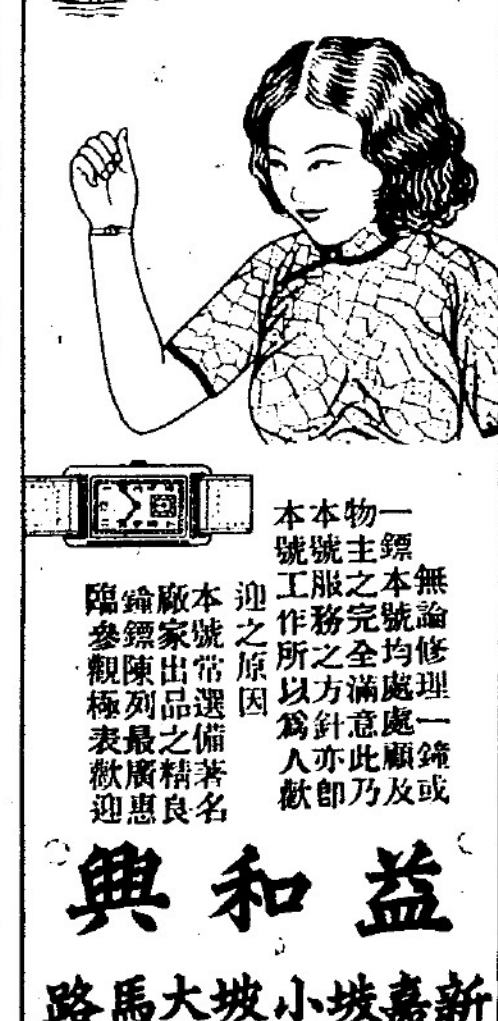 無論修理一鐘或
一鏢本號均處處顧及
物主之完全滿意此乃
本號服務之方針亦即
本號工作所以爲人歡
迎之原因
本號常選備著名
廠家出品之精良
鐘鏢陳列最廣惠
臨參觀極表歡迎
益和興
新嘉坡小坡大馬路